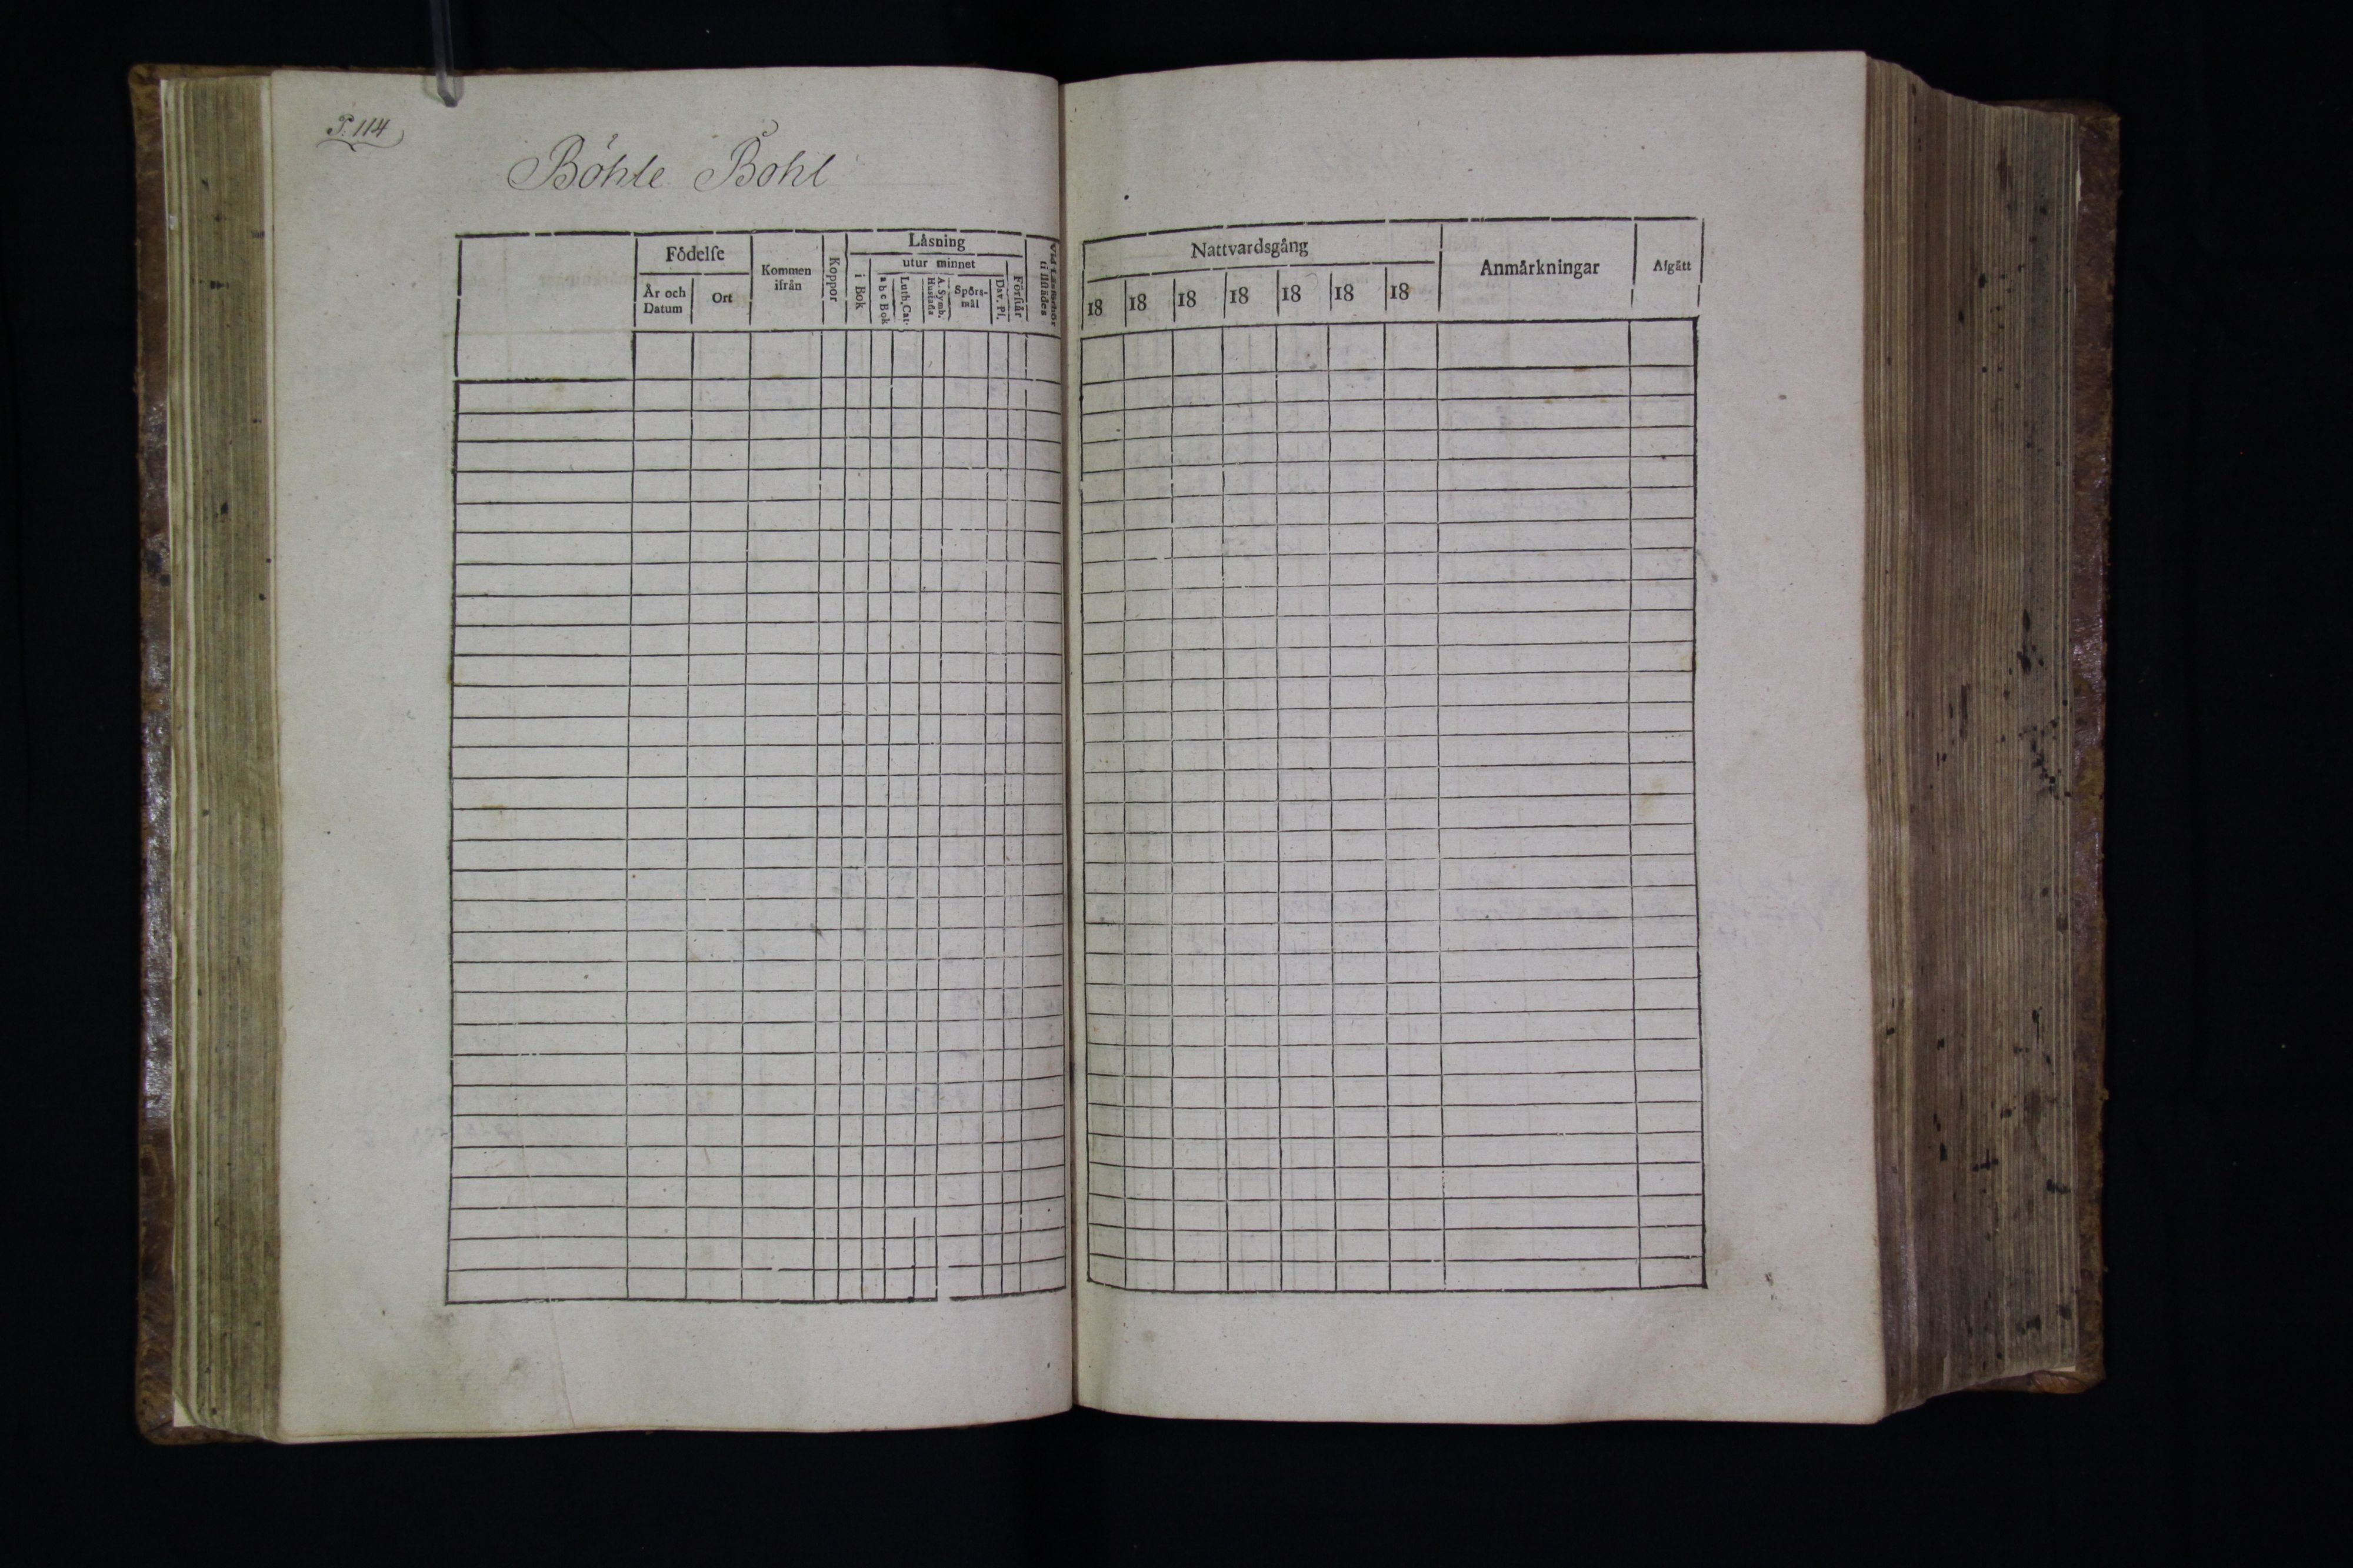 P. 114
Böhle Bohl
Födelse
År och Datum
Ort
Kommen ifrån
Koppor
Läsning
i Bok
utur minnet
a b c Bok
Luth. Cat.
A. Symb. Hustafla
Spörs-mål
Dav. Ps.
Förstår
tillstädes
Nattvardsgång
18 18 18 18 18 18 18
Anmärkningar
Afgått